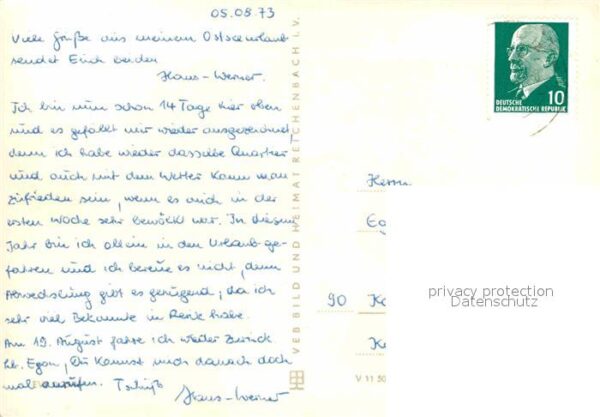 05.08.73
Viele Grüße aus meinem Ostseeurlaub
sendet Euch beiden
Hans-Werner.
Ich bin nun schon 14 Tage hier oben
und es gefällt mir wieder ausgezeichnet,
denn ich habe wieder dasselbe Quartier
und auch mit dem Wetter kann man
zufrieden sein, wenn es auch in der
ersten Woche sehr bewölkt war. In diesem
Jahr bin ich allein in den Urlaub ge-
fahren und ich bereue es nicht, denn
Abwechslung gibt es genügend, da ich
sehr viel Bekannte in Rerik habe.
Am 19. August fahre ich wieder zurück.
Lb. Egon, Du kannst mich danach doch
mal anrufen. Tschüß
Hans-Werner
VEB BILD UND HEIMAT REICHENBACH I. V.
V 11 50
DEUTSCHE
DEMOKRATISCHE REPUBLIK
10
Herrn
Eg
90
privacy protection
Datenschutz